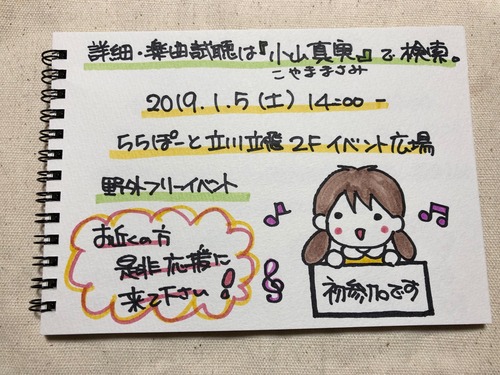 詳細・楽曲試聴は『小山真実』で検索。
こやままさみ
2019.1.5(土) 14:00-
ららぽーと立川立飛2Fイベント広場
野外フリーイベント
お近くの方
是非応援に
来て下さい!
初参加です